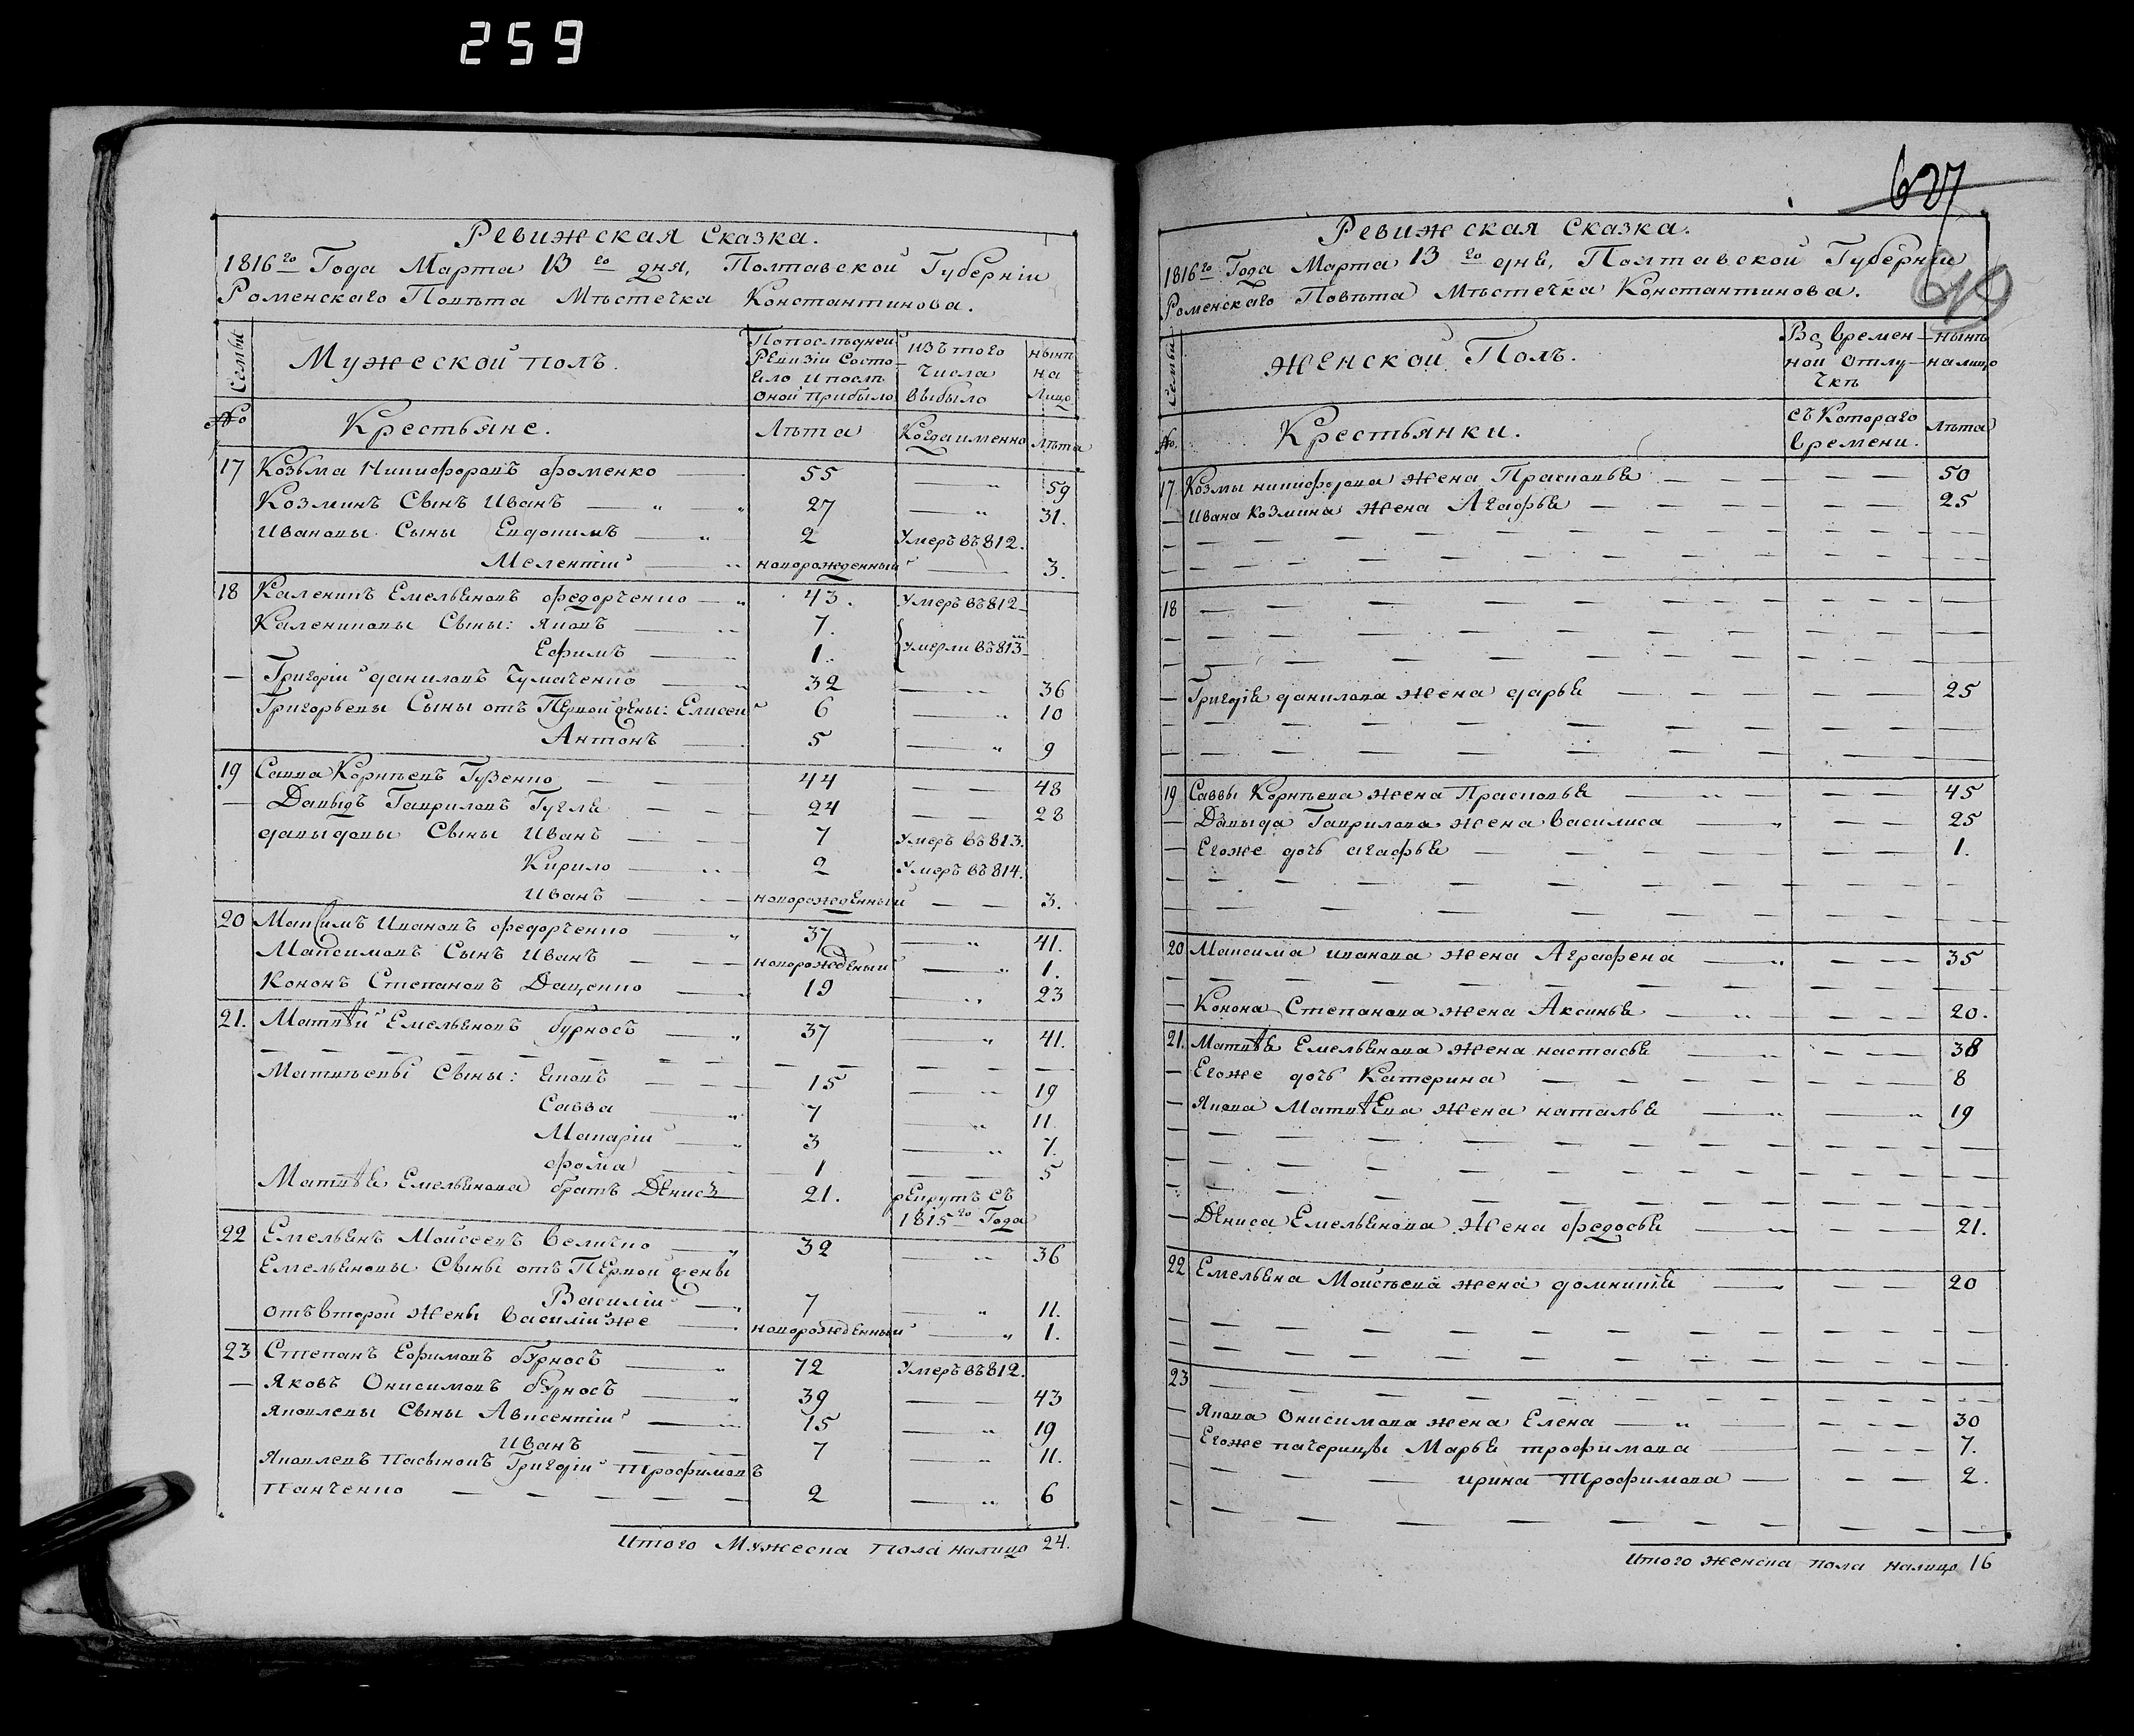 259
Ревижская Сказка.
1816го Года Марта 13го дня, Полтавской Губерніи
Роменскаго Повѣта Мѣстечка Константинова.
Семьи
Мужеской полъ.
По послѣдней Ревизіи Состояло и послѣ оной прибыло
изъ того числа выбыло
нынѣ на Лицо
№
Крестьяне.
Лѣта
Когда именно
Лѣта
17 Козьма Никифоровъ Фоменко 55 — 59
Козминъ Сынъ Иванъ 27 — 31.
Ивановы Сыны Евдокимъ 2 Умеръ въ 812.
Мелентій новорожденный — 3.
18 Каленикъ Емельяновъ Федорченко 43. Умеръ въ 812
Калениковы Сыны: Яковъ 7.
Ефимъ 1. Умерли въ 813
— Григорій Даниловъ Чумаченко 32 — 36
Григорьевы Сыны отъ Первой жены: Елисей 6 — 10
Антонъ 5 — 9
19 Савва Корнѣевъ Гузенко 44 — 48
— Давыдъ Гавриловъ Гугля 24 — 28
Давыдовы Сыны Иванъ 7 Умеръ въ 813.
Кирило 2 Умеръ въ 814.
Иванъ новорожденный — 3.
20 Максимъ Ивановъ Федорченко 37 — 41.
Максимовъ Сынъ Иванъ новорожденный — 1.
Кононъ Степановъ Даценко 19 — 23
21. Матвѣй Емельяновъ Бурносъ 37 — 41.
Матвѣевы Сыны: Яковъ 15 — 19
Савва 7 — 11.
Макарій 3 — 7.
Фома 1 — 5
Матвѣя Емельянова братъ Денисъ 21. рекрутъ съ
1815го Года
22 Емельянъ Мойсеевъ Величко 32 — 36
Емельяновы Сыны отъ Первой жены
Василій 7 — 11.
отъ второй жены Василій же новорожденный — 1.
23 Степанъ Ефимовъ Бурносъ 72 Умеръ въ 812.
— Яковъ Онисимовъ Бурносъ 39 — 43
Яковлевы Сыны Авксентій 15 — 19
Иванъ 7 — 11.
Яковлевъ пасынокъ Григорій Трофимовъ
Панченко 2 — 6
Итого Мужеска пола налицо 24.
627
Ревижская Сказка.
1816го Года Марта 13го дня, Полтавской Губерніи
Роменскаго Повѣта Мѣстечка Константинова.
Семьи
Женской Полъ.
Во временной отлучкѣ
нынѣ налицо
№.
Крестьянки.
съ Котораго времени.
Лѣта
17. Козмы Никифорова жена Прасковья — 50
— Ивана Козмина жена Агафья — 25
18
— Григорія Данилова жена Дарья — 25
19 Саввы Корнѣева жена Прасковья — 45
— Давыда Гаврилова жена Василиса — 25
— Егоже дочь Агафья — 1.
20 Максима Иванова жена Аграфена — 35
— Конона Степанова жена Аксинья — 20.
21. Матвѣя Емельянова жена Настасья — 38
— Егоже дочь Катерина — 8
— Якова Матвѣева жена Наталья — 19
— Дениса Емельянова жена Федосья — 21.
22 Емельяна Мойсѣева жена Домникія — 20
23
— Якова Онисимова жена Елена — 30
— Егоже пачерицы Марья Трофимова — 7.
— Ирина Трофимова — 2.
Итого женска пола налицо 16